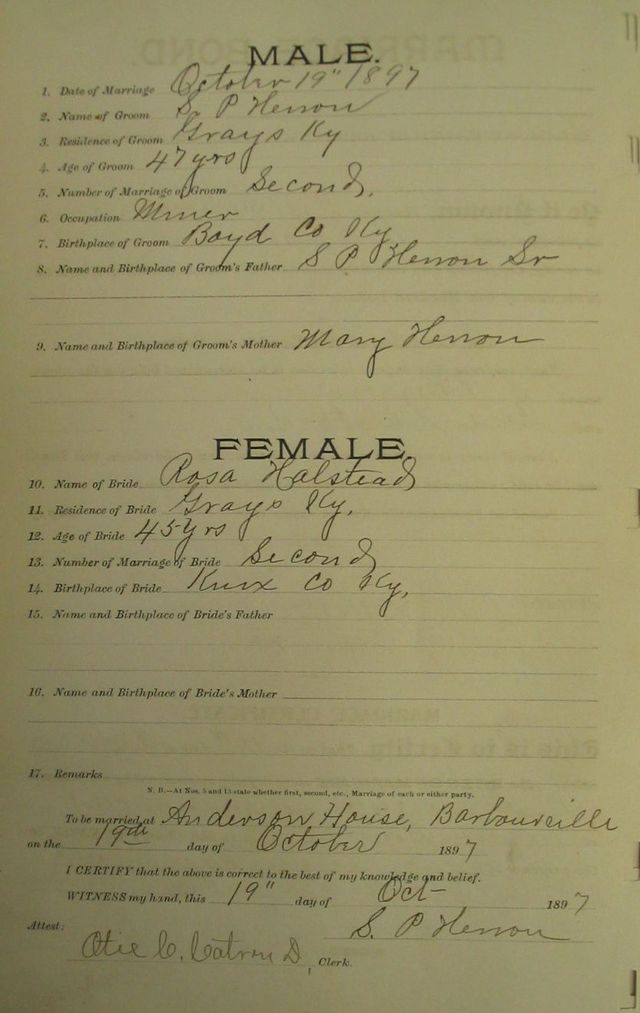 MALE.
1. Date of Marriage October 19" 1897
2. Name of Groom S. P Herron
3. Residence of Groom Grays Ky
4. Age of Groom 47 yrs
5. Number of Marriage of Groom Second,
6. Occupation Miner
7. Birthplace of Groom Boyd Co Ky
8. Name and Birthplace of Groom's Father S P Herron Sr
9. Name and Birthplace of Groom's Mother Mary Herron
FEMALE.
10. Name of Bride Rosa Halstead
11. Residence of Bride Grays Ky,
12. Age of Bride 45 yrs
13. Number of Marriage of Bride Second
14. Birthplace of Bride Knox Co Ky,
15. Name and Birthplace of Bride's Father
16. Name and Birthplace of Bride's Mother
17. Remarks
N. B.—At Nos. 5 and 13 state whether first, second, etc., Marriage of each or either party.
To be married at Anderson House, Barbourville
on the 19th day of October 1897
I CERTIFY that the above is correct to the best of my knowledge and belief.
WITNESS my hand, this 19" day of Oct 1897
S. P Herron
Attest:
C. Catron D, Clerk.